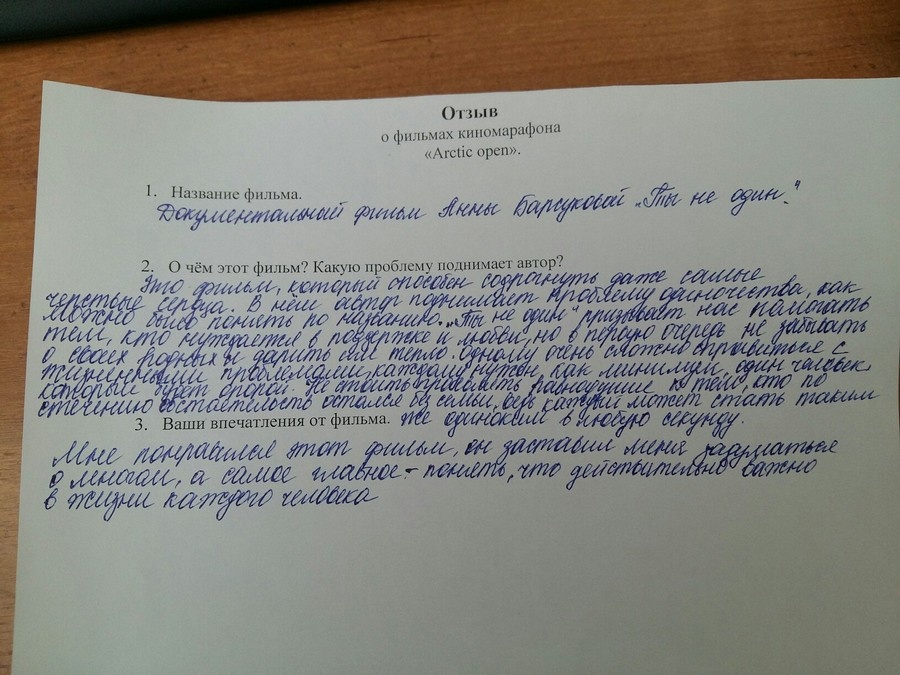 Отзыв
о фильмах киномарафона
«Arctic open».
1. Название фильма.
Документальный фильм Анны Барсуковой „Ты не один".
2. О чём этот фильм? Какую проблему поднимает автор?
Это фильм, который способен содрогнуть даже самые
черствые сердца. В нём автор поднимает проблему одиночества, как
можно было понять по названию. „Ты не один" призывает нас помогать
тем, кто нуждается в поддержке и любви, но в первую очередь не забывать
о своих родных и дарить им тепло. Одному очень сложно справиться с
жизненными проблемами, каждому нужен, как минимум, один человек,
который будет опорой. Не стоит проявлять равнодушие к тем, кто по
стечению обстоятельств остался без семьи, ведь каждый может стать таким
же одиноким в любую секунду.
3. Ваши впечатления от фильма.
Мне понравился этот фильм, он заставил меня задуматься
о многом, а самое главное - понять, что действительно важно
в жизни каждого человека